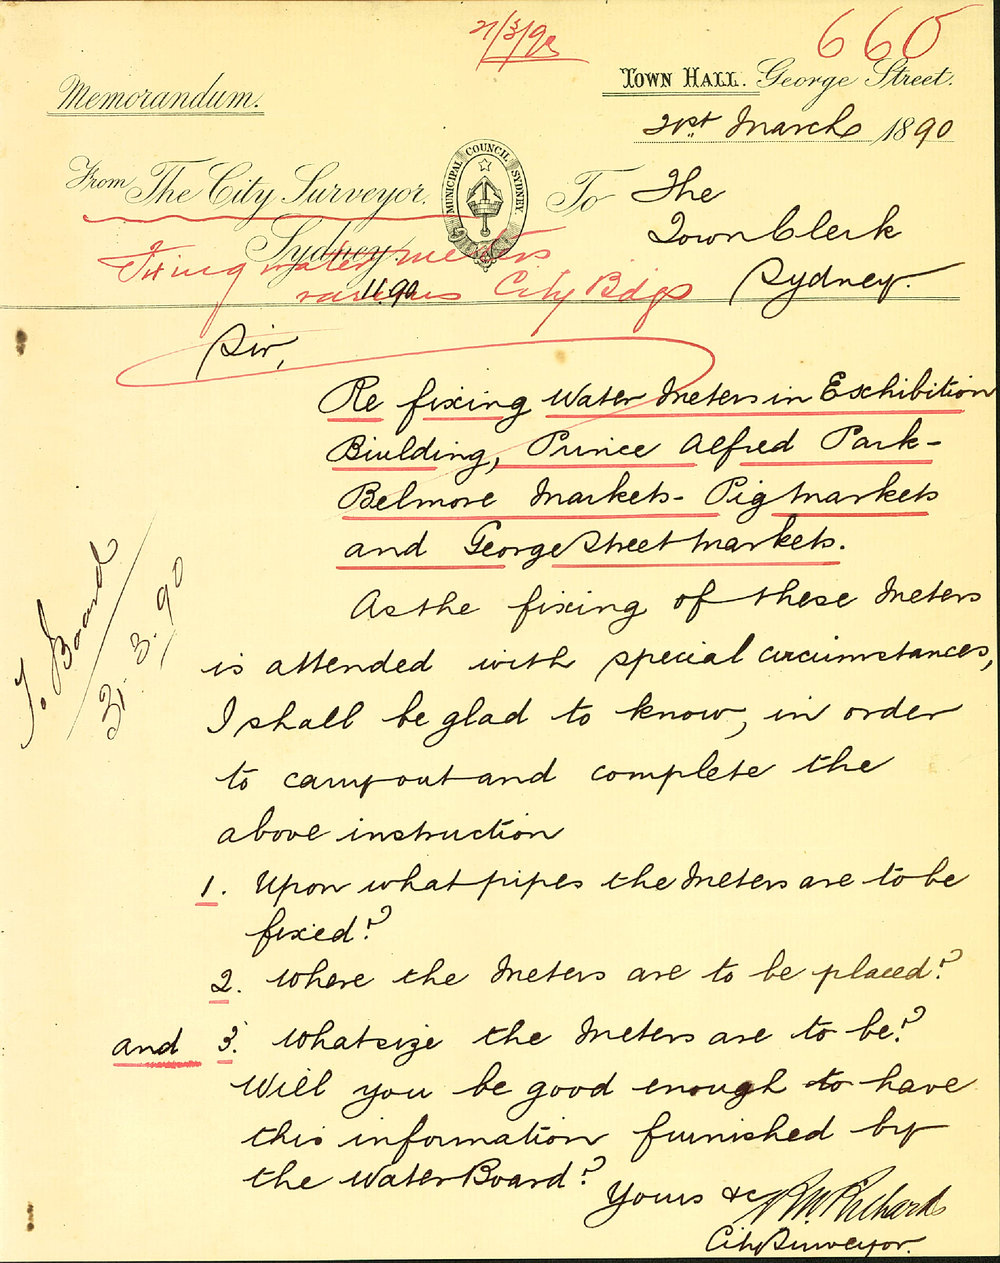 660
Town Hall. George Street.
Memorandum.
21st March 1890
MUNICIPAL COUNCIL SYDNEY.
From The City Surveyor.
To The
Sydney.
Town Clerk
Sydney.
Fixing water meters
various City Bdgs
11.90
Sir,
Re fixing Water Meters in Exhibition
Biulding, Prince Alfred Park-
Belmore Markets- Pig Markets
and George Street Markets.
As the fixing of these Meters
is attended with special circumstances,
I shall be glad to know, in order
to carry out and complete the
above instruction
1. Upon what pipes the Meters are to be
fixed?
2. Where the Meters are to be placed?
and 3. What size the Meters are to be?
Will you be good enough to have
this information furnished by
the Water Board?
Yours &c
City Surveyor.
Board
31.3.90